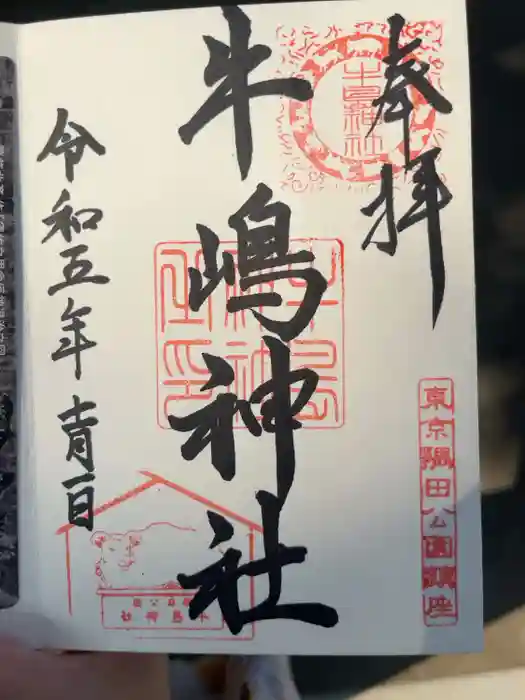 奉拝
牛嶋神社
東京隅田公園鎮座
令和五年十一月一日
牛嶋神社